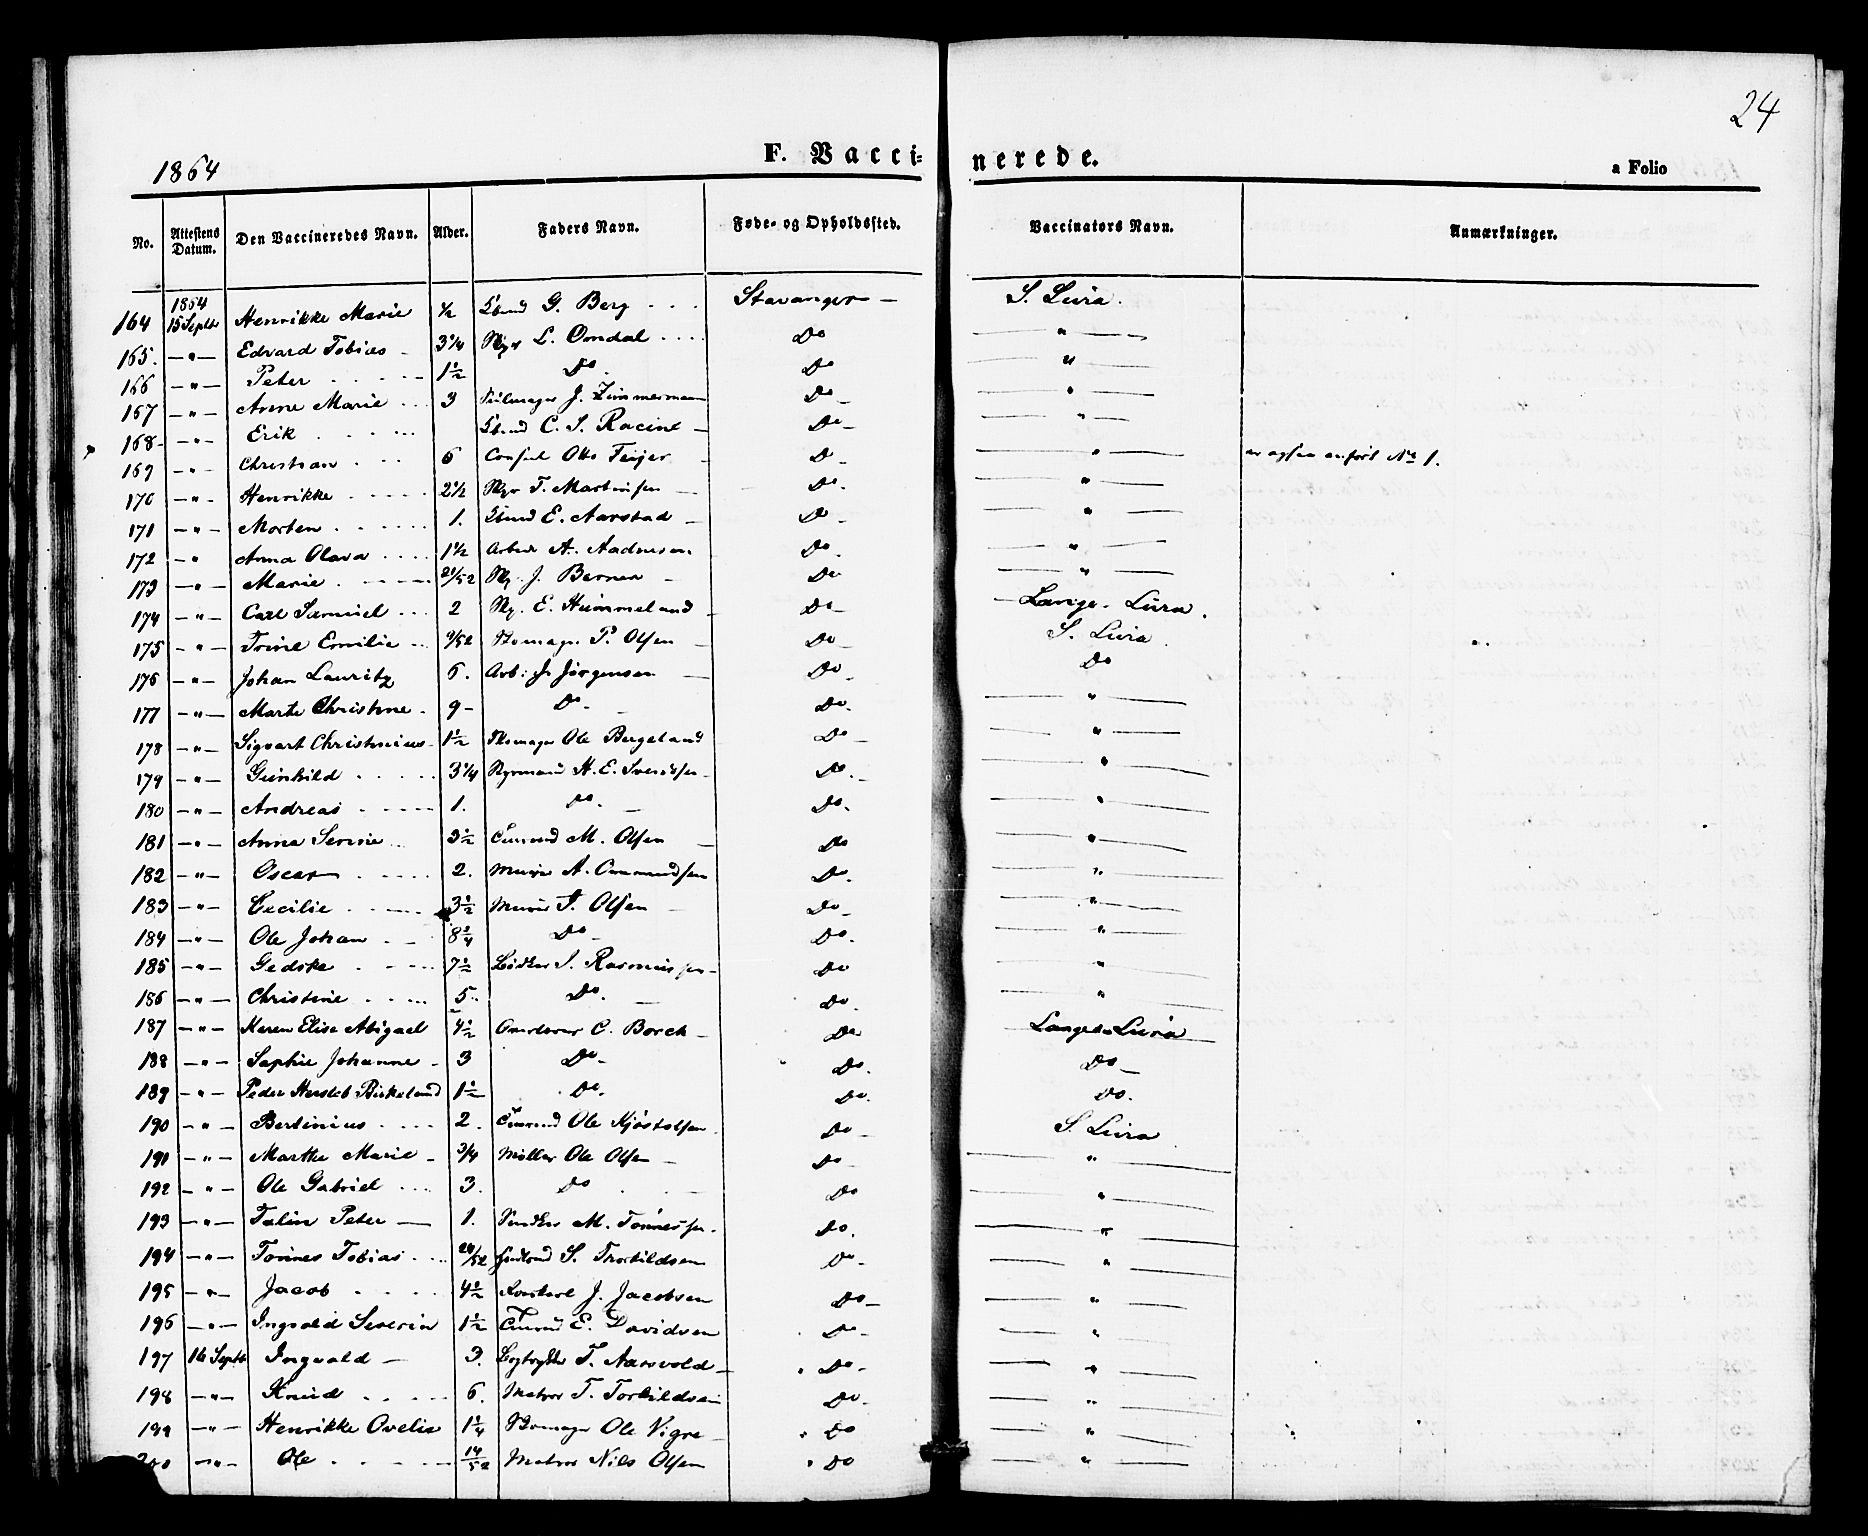 24
1864
F. Vaccinerede.
a Folio
No. Attestens Datum. Den Vaccineredes Navn. Alder. Faders Navn. Føde- og Opholdssted. Vaccinators Navn. Anmærkninger.
1864
164 15 Septbr Henrikke Marie 1/2 G. Berg Stavanger S. Lura.
165. —"— Edvard Tobias 3 1/4 L. Omdal Do "
166 —"— Peter 1 1/2 Do. Do "
167 —"— Anne Marie 3 Seilmager J. Zimmerman Do "
168 —"— Erik C. S. Racine Do "
169 —"— Christian 6 Consul Otto Feijer D " er ogsaa anført No 1.
170 —"— Henrikke 2 1/2 T. Martinsen Do. "
171 —"— Morten 1. E. Aarstad Do "
172 —" Anna Olava 1 1/2 A. Aadnesen Do. "
173 —"— Marie 21/52 J. Berner Do "
174 —"— Carl Samuel 2 E. Hummeland Do Lange. Lura.
175 —"— Trine Emilie 9/52 Skomager P. Olsen Do S. Lura.
176 —"— Johan Lauritz 6. Arb: J. Jørgensen Do Do
177 —"— Marte Christine 9 Do Do. "
178 —"— Sigvart Christinius 1 1/2 Skomager Ole Bergeland Do "
179 —"— Gunhild 3 1/4 Styrmand H. E. Svendsen Do. "
180 —"— Andreas 1. Do. Do. "
181 —"— Anna Serine 3 1/2 M. Olsen Do "
182 —"— Oscar 2. Murer A. Ommundsen Do. "
183 —"— Cecilie 3 1/2 Murer T. Olsen Do "
184 —"— Ole Johan 8 3/4 Do Do. "
185 —"— Gedske 7 1/2 Bødker S. Rasmussen Do "
186 —"— Christine 5 Do. Do. "
187 —"— Karen Elise Abigael 4 1/2 C. Borch Do Lange Lura
188 —"— Sophie Johanne 3 Do Do. Do
189 —"— Peder Hersleb Birkeland 1 1/2 Do. Do. Do.
190 —"— Bertinius 2. Ole Kjøstolsen Do S. Lura
191 —"— Marthe Marie 3/4 Møller Ole Olsen Do "
192 —"— Ole Gabriel 3. Do Do "
193 —"— Talin Peter 1. Snedker M. Tønnessen. Do. "
194 —"— Tønnes Tobias 20/52 S. Thorkildsen Do "
195 —"— Jacob 4 1/2 J. Jacobsen Do "
196 —"— Ingvald Severin 1 1/2 E. Davidsen Do "
197 16 Septb Ingvald 3. Bogtrykker T. Aarsvold Do "
198 —"— Knud 6. Matros T. Torkildsen Do "
199 —"— Henrikke Ovelia 1 1/4 Skomager Ole Vigre Do "
200 —"— Ole 14/52 Matros Nils Olsen Do "